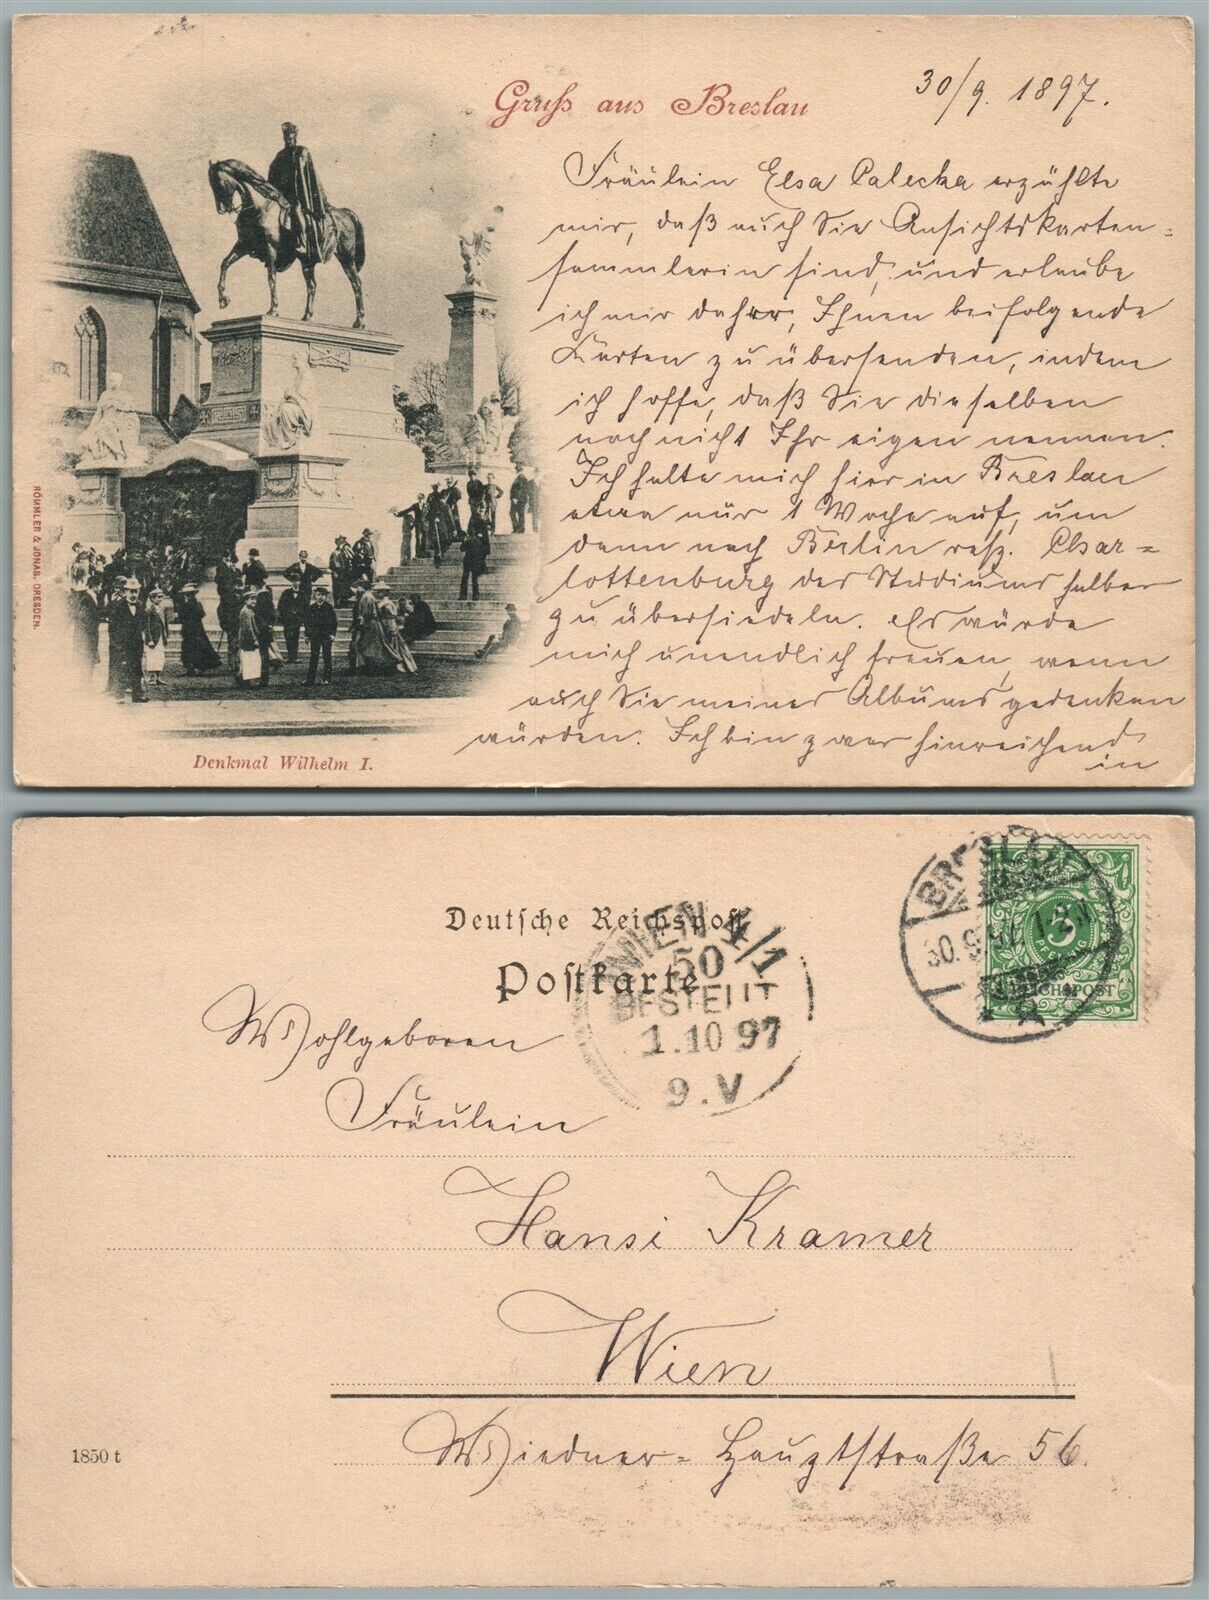 Gruss aus Breslau
30/9. 1897.
Fräulein Elsa Palecka erzählte
mir, daß auch Sie Ansichtskarten-
sammlerin sind, und erlaube
ich mir daher, Ihnen beifolgende
Karten zu übersenden, indem
ich hoffe, daß Sie dieselben
noch nicht Ihr eigen nennen.
Ich halte mich hier in Breslau
etwa nur 1 Woche auf, um
dann nach Berlin resp. Char-
lottenburg des Studiums halber
zu übersiedeln. Es würde
mich unendlich freuen, wenn
auch Sie meines Albums gedenken
würden. Ich bin zwar hinreichend
in
RÖMMLER & JONAS, DRESDEN.
Denkmal Wilhelm I.
Deutsche Reichspost
Postkarte
BRESLAU
30.9.97. 1-2N
* R
3
PFENNIG
REICHSPOST
WIEN 4/1
50
BESTELLT
1.10 97
9.V
Wohlgeboren
Fräulein
Hansi Kramer
Wien
Wiedner-Hauptstraße 56.
1850 t